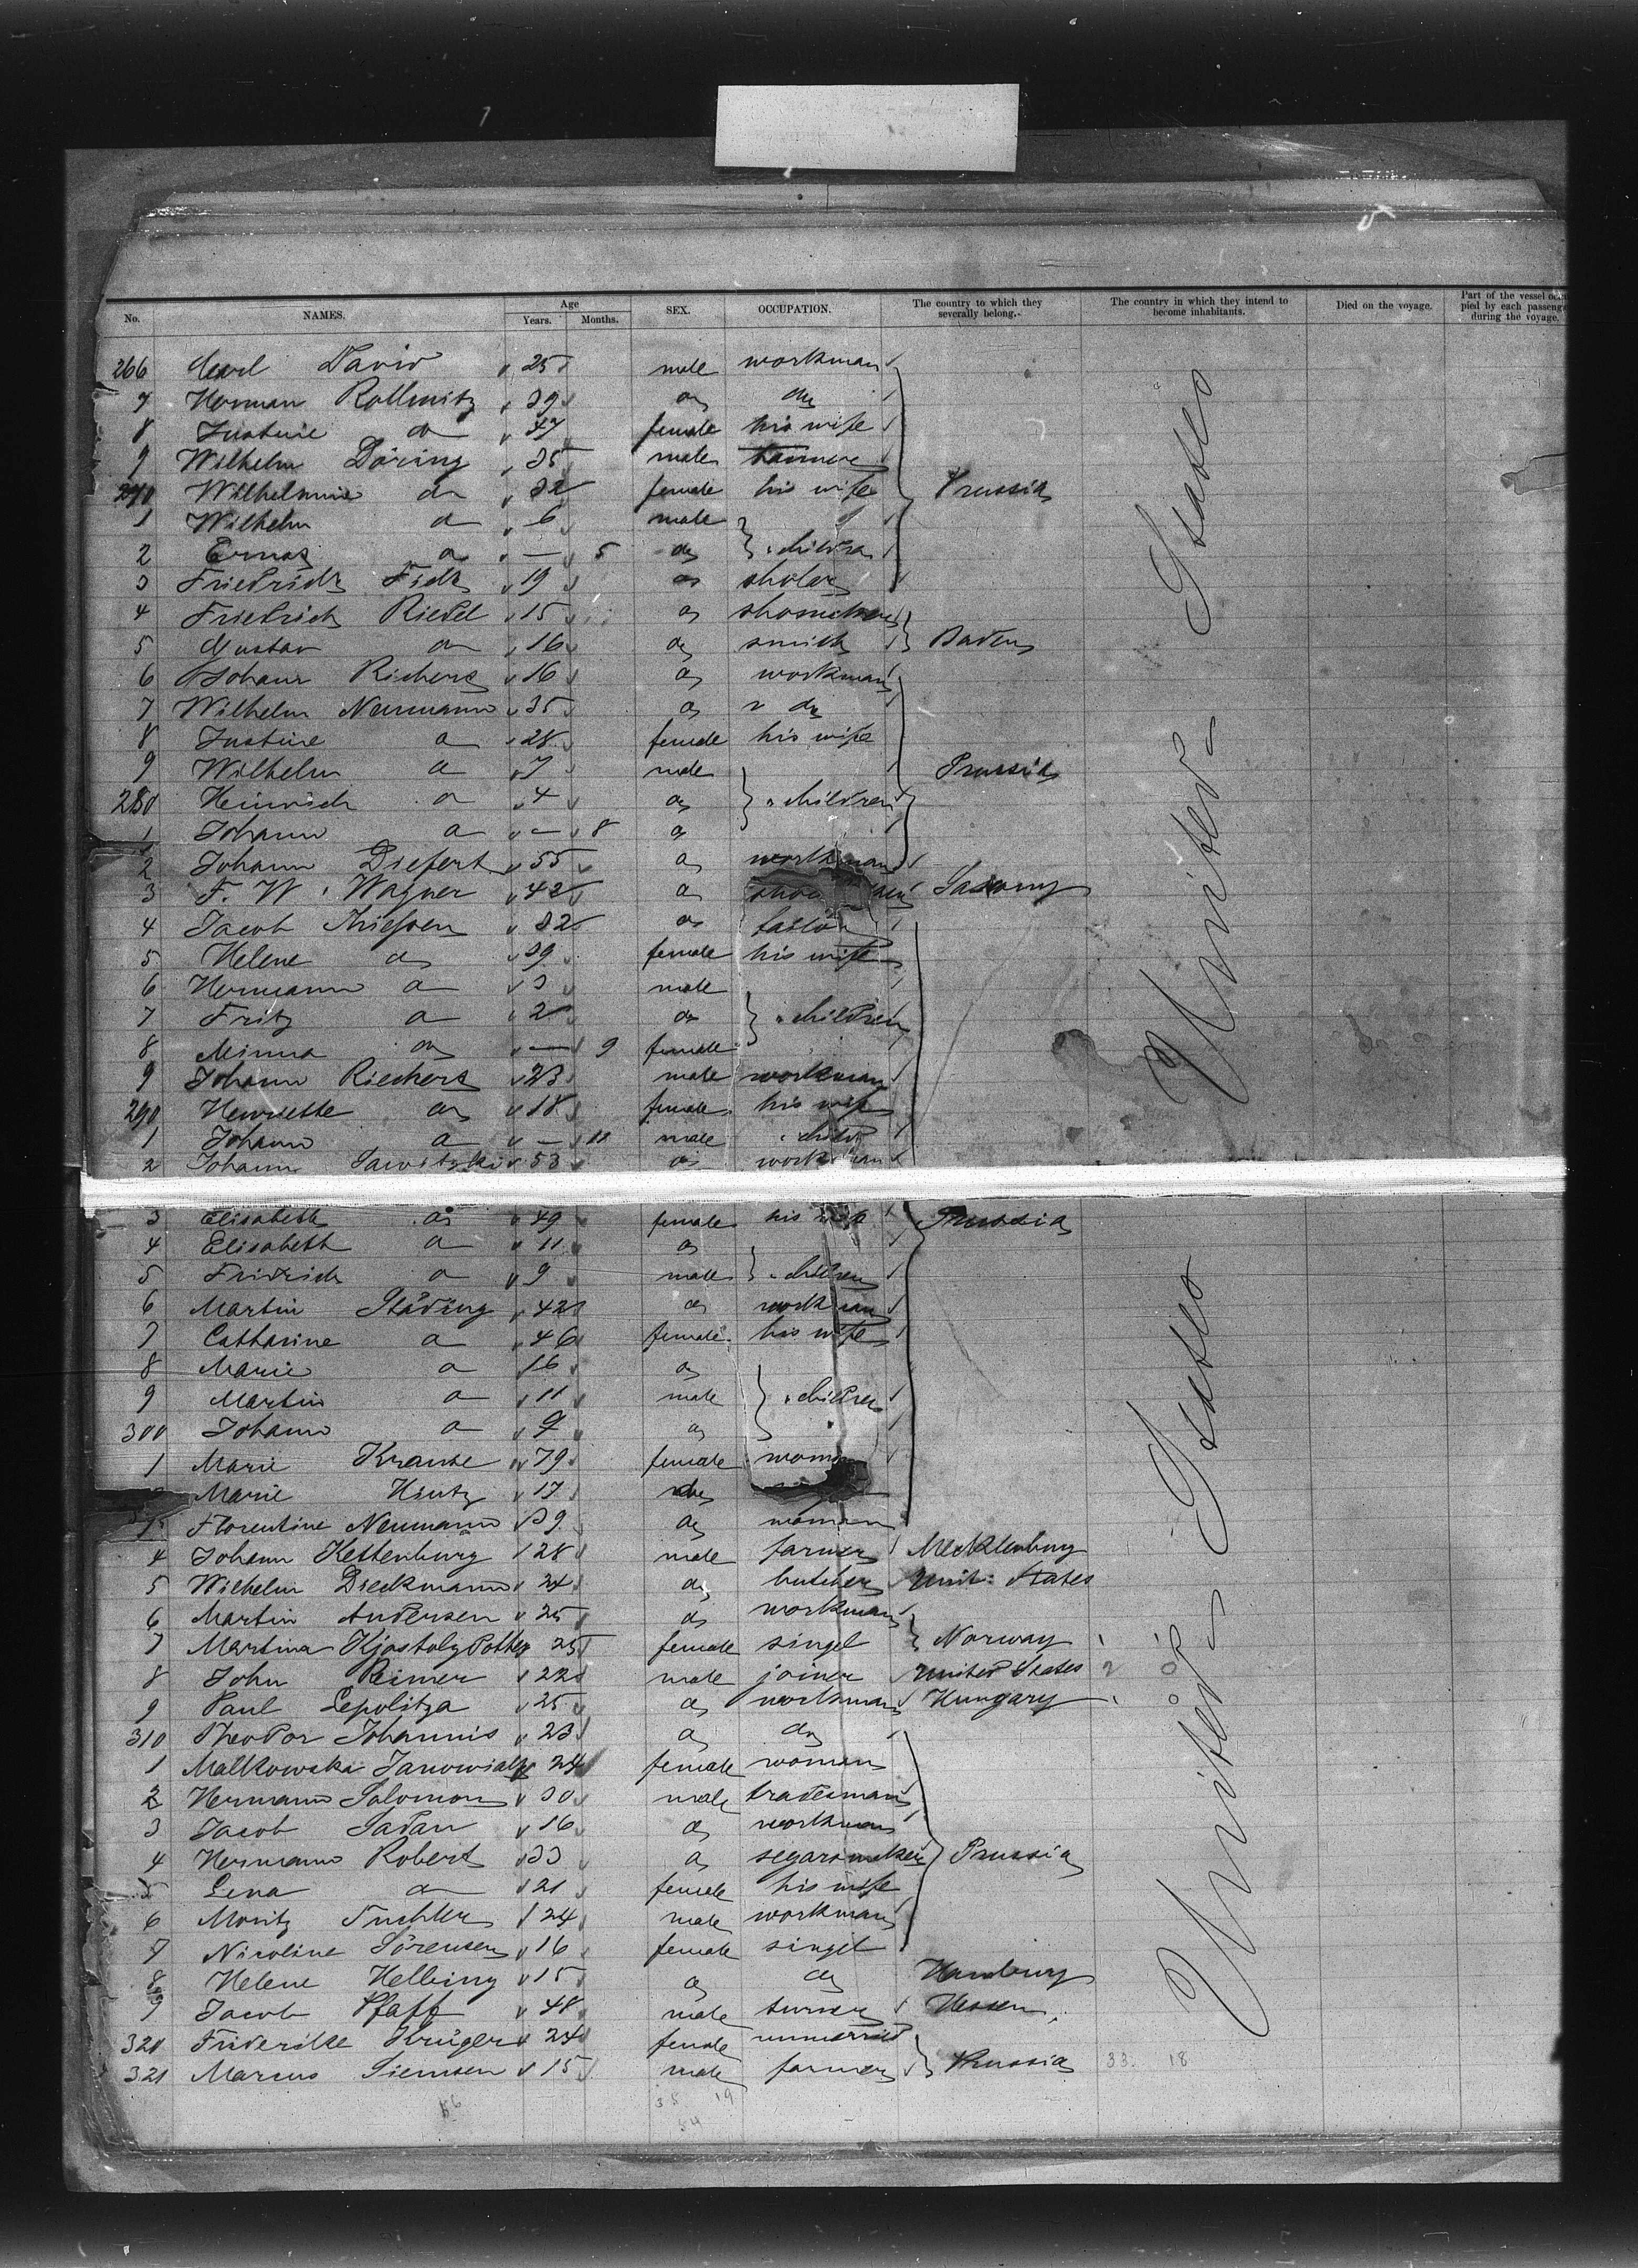 No. NAMES. Age Years. Months. SEX. OCCUPATION. The country to which they severally belong. The country in which they intend to become inhabitants. Died on the voyage. Part of the vessel occupied by each passenger during the voyage.
266 Carl David 25 male workman
7 Herman Rollmitz 39 do do
8 Justine do 47 female his wife
9 Wilhelm Döring 35 male farmer
270 Wilhelmine do 32 female his wife Prussia
1 Wilhelm do 6 male
2 Ernas do — 5 do children
3 Friedrich Fick 19 do sholar
4 Friedrich Riedel 15 do shomaker
5 Gustav do 16 do smith Baden
6 Johann Richers 16 do workman
7 Wilhelm Neumann 35 do do
8 Justine do 28 female his wife
9 Wilhelm do 7 male Prussia
280 Heinrich do 4 do children
1 Johann do — 8 do
2 Johann Diefert 55 do workman
3 F. W. Wagner 42 do Saxony
4 Jacob Thiessen 32 do tailor
5 Helene do 39 female his wife
6 Hermann do 3 male
7 Fritz do 2 do children
8 Minna do — 9 female
9 Johann Riechers 23 male workman
290 Henriette do 18 female his wife
1 Johann do — 11 male child
2 Johann Sawitzki 53 do workman
3 Elisabeth do 49 female his wife Prussia
4 Elisabeth do 11 do
5 Fridrich do 9 male children
6 Martin Städing 42 do workman
7 Catharine do 46 female his wife
8 Marie do 16 do
9 Martin do 11 male children
300 Johann do 9 do
1 Marie Krause 79 female woman
Marie Hintz 17 do
Florentine Neumann 39 do woman
4 Johann Kettenburg 28 male farmer Mecklenburg
5 Wilhelm Dieckmann 24 do butcher Unit: States
6 Martin Andersen 25 do workman
7 Martina Kjostolg Potter 25 female singel Norway
8 John Reimer 22 male joiner United States
9 Paul Lepolitza 25 do workman Hungary
310 Theodor Johannis 23 do do
1 Malkowska Janowialz 24 female woman
2 Hermann Solomon 30 male tradesman
3 Jacob Sadan 16 do workman
4 Hermann Robert 33 do segarsmaker Prussia
5 Lena do 21 female his wife
6 Moritz Fuchler 24 male workman
7 Nicoline Sörensen 16 female singel
8 Helene Helbing 15 do do Hamburg
9 Jacob Pfaff 48 male turner Hessen
320 Friderike Krüger 24 female unmarried
321 Marcus Siemsen 15 male farmer Prussia 33. 18
United States
United States
56 35 19
54